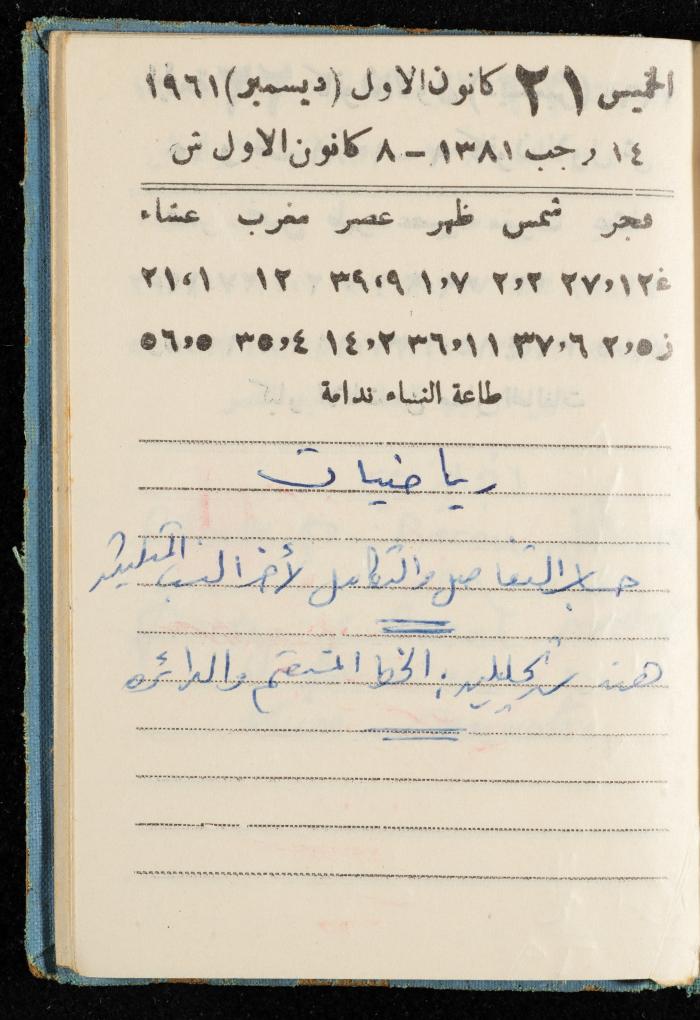 الخميس ٢١ كانون الاول (ديسمبر) ١٩٦١
١٤ رجب ١٣٨١ – ٨ كانون الاول ش
فجر شمس ظهر عصر مغرب عشاء
غ ١٢،٢٧ ٢،٢ ٧،١ ٩،٣٩ ١٢ ١،٢١
ز ٥،٢ ٦،٣٧ ١١،٣٦ ٢،١٤ ٤،٣٥ ٥،٥٦
طاعة النساء ندامة
رياضيات
حساب التفاضل والتكامل لأخر النسب المثلثية
هندسة تحليلية: الخط المستقيم والدائرة